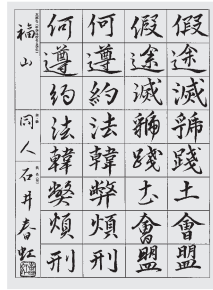 假途滅虢踐土會盟
假途滅虢踐土會盟
何遵約法韓弊煩刑
何遵約法韓弊煩刑
福山 同人 石井春虹